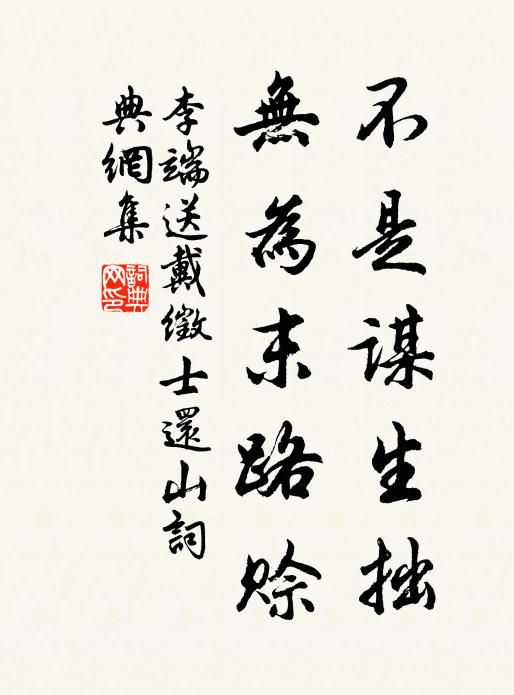 不是謀生拙
無為末路賒
李端送戴徵士還山詞
典網集
詞典網印